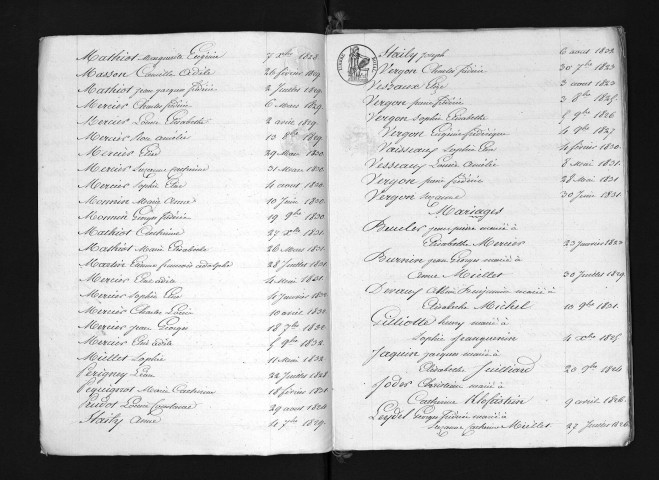 Mathiot Marguerite Eugénie 7 Xbre 1828.
Masson Camille Adèle 26 février 1829.
Mathiot jean jacques frédéric 2 Juillet 1829.
Mercier Charles frédéric 6 Mars 1829.
Mercier Louise Elisabeth 2 avril 1829.
Mercier amélie 13 8bre 1829.
Mercier Elise 29 Mars 1830.
Mercier Suzanne Catherine 31 Mars 1830.
Mercier Sophie Elise 4 août 1830.
Monnin Marie Anne 10 Juin 1830.
Monnin Georges frédéric 19 9bre 1830.
Mathiot Catherine 27 Xbre 1830.
Mathiot Marie Elisabeth 26 Mars 1831.
Martin Etienne francois adolphe 28 Juillet 1831.
Mercier Elise adèle 4 Mai 1831.
Mercier Sophie Elise 4 Janvier 1832.
Mercier Charles Louis 10 avril 1832.
Mercier jean Georges 18 7bre 1832.
Mercier Elise adèle 5 9bre 1832.
Miellet Sophie 11 Mai 1832.
Perigney Léon 22 Juillet 1828
Pequignot Marie Catherine 18 février 1831.
Prudot Louise Constance 29 août 1824
Stailÿ Anne 4 7bre 1829.
Stailÿ joseph 6 août 1832.
Vergon Charles frédéric 30 7bre 1823
Vessaux Elise 3 août 1823
Vergon pierre frédéric 3 8bre 1825.
Vergon Sophie Elisabeth 5 9bre 1826.
Vergon Eugénie frédérique 4 9bre 1827.
Vaisseaux Sophie Elise 4 février 1830.
Vesseaux Louise Amélie 8 Mai 1831.
Vergon pierre frédéric 28 Mai 1831.
Vergon Suzanne 30 Juin 1831.
Mariages
Beucler jean pierre marié à
Elisabeth Mercier 23 Janvier 1822
Burnin jean Georges marié à
Anne Miellet 30 Juillet 1829.
Devaux Benjamin marié à
Elisabeth Michel 10 9bre 1831.
Gilliotte henry marié à
Sophie jeanguenin 4 Xbre 1825.
Jaquin jacques marié à
Elisabeth Juilliard 20 9bre 1824
Joder Christian marié à
Catherine Klopfstein 9 avril 1826.
Leydet Georges frédéric marié à
Suzanne Catherine Miellet 27 Juillet 1826